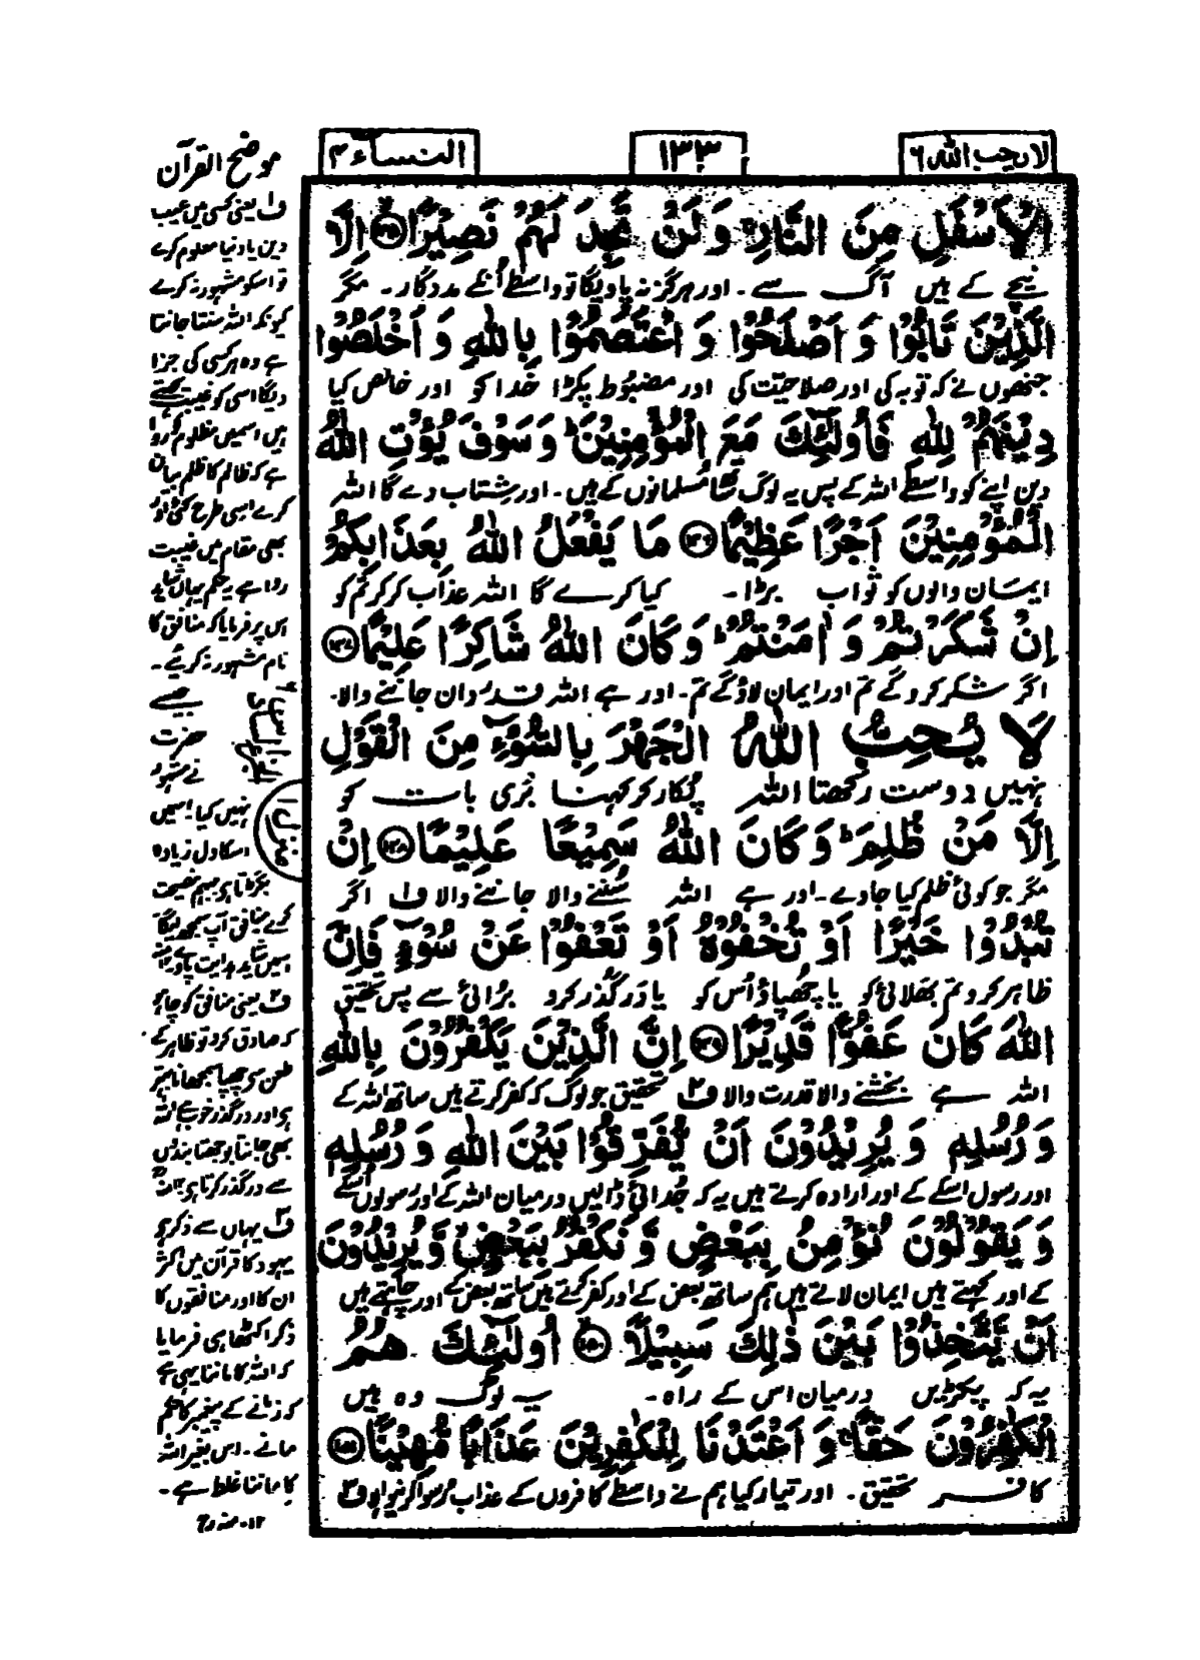 لا یحب اللہ ۶
۱۳۳
النساء ۴
الْاَسْفَلِ مِنَ النَّارِ ۚ وَلَنْ تَجِدَ لَهُمْ نَصِيْرًا ﴿۱۴۵﴾ اِلَّا
نیچے کے ہیں آگ سے ۔ اور ہرگز نہ پاویگا تو واسطے اُنکے مددگار ۔ مگر
الَّذِيْنَ تَابُوْا وَ اَصْلَحُوْا وَ اعْتَصَمُوْا بِاللّٰهِ وَ اَخْلَصُوْا
جنھوں نے کہ توبہ کی اور صلاحیت کی اور مضبوط پکڑا خدا کو اور خالص کیا
دِيْنَهُمْ لِلّٰهِ فَاُولٰٓئِكَ مَعَ الْمُؤْمِنِيْنَ ؕ وَ سَوْفَ يُؤْتِ اللّٰهُ
دین اپنے کو واسطے اللہ کے پس یہ لوگ ساتھ مُسلمانوں کے ہیں ۔ اور شتاب دے گا اللہ
الْمُؤْمِنِيْنَ اَجْرًا عَظِيْمًا ﴿۱۴۶﴾ مَا يَفْعَلُ اللّٰهُ بِعَذَابِكُمْ
ایمان والوں کو ثواب بڑا ۔ کیا کرے گا اللہ عذاب کر کر تم کو
اِنْ شَكَرْتُمْ وَ اٰمَنْتُمْ ؕ وَ كَانَ اللّٰهُ شَاكِرًا عَلِيْمًا ﴿۱۴۷﴾
اگر شکر کرو گے تم اور ایمان لاؤ گے تم ۔ اور ہے اللہ قدردان جاننے والا ۔
لَا يُحِبُّ اللّٰهُ الْجَهْرَ بِالسُّوْٓءِ مِنَ الْقَوْلِ
نہیں دوست رکھتا اللہ پُکار کر کہنا بُری بات کو
اِلَّا مَنْ ظُلِمَ ؕ وَ كَانَ اللّٰهُ سَمِيْعًا عَلِيْمًا ﴿۱۴۸﴾ اِنْ
مگر جو کوئی ظلم کیا جاوے ۔ اور ہے اللہ سُننے والا جاننے والا ف۱ اگر
تُبْدُوْا خَيْرًا اَوْ تُخْفُوْهُ اَوْ تَعْفُوْا عَنْ سُوْٓءٍ فَاِنَّ
ظاہر کرو تم بھلائی کو یا چھپاؤ اُس کو یا درگذر کرو بُرائی سے پس تحقیق
اللّٰهَ كَانَ عَفُوًّا قَدِيْرًا ﴿۱۴۹﴾ اِنَّ الَّذِيْنَ يَكْفُرُوْنَ بِاللّٰهِ
اللہ ہے بخشنے والا قدرت والا ف۲ تحقیق جو لوگ کہ کفر کرتے ہیں ساتھ اللہ کے
وَ رُسُلِهٖ وَ يُرِيْدُوْنَ اَنْ يُّفَرِّقُوْا بَيْنَ اللّٰهِ وَ رُسُلِهٖ
اور رسول اسکے کے اور ارادہ کرتے ہیں یہ کہ جُدائی ڈالیں درمیان اللہ کے اور رسولوں اسکے
وَ يَقُوْلُوْنَ نُؤْمِنُ بِبَعْضٍ وَّ نَكْفُرُ بِبَعْضٍ ۙ وَّ يُرِيْدُوْنَ
کے اور کہتے ہیں ایمان لاتے ہیں ہم ساتھ بعض کے اور کفر کرتے ہیں ساتھ بعض کے اور چاہتے ہیں
اَنْ يَّتَّخِذُوْا بَيْنَ ذٰلِكَ سَبِيْلًا ﴿۱۵۰﴾ اُولٰٓئِكَ هُمُ
یہ کہ پکڑیں درمیان اس کے راہ ۔ یہ لوگ وہ ہیں
الْكٰفِرُوْنَ حَقًّا ۚ وَ اَعْتَدْنَا لِلْكٰفِرِيْنَ عَذَابًا مُّهِيْنًا ﴿۱۵۱﴾
کافر تحقیق ۔ اور تیار کیا ہم نے واسطے کافروں کے عذاب رسوا کرنیوالا ف۳
موضح القرآن
ف۱ یعنی کسی میں عیب
دین یا دنیا معلوم کرے
تو اسکو مشہور نہ کرے
کیونکہ اللہ سنتا جانتا
ہے وہ ہر کسی کی جزا
دیگا اسی کو غیبت کہتے
ہیں اسمیں مظلوم کو روا
ہے کہ ظالم کا ظلم بیان
کرے اسی طرح کئی اور
بھی مقام میں غیبت
روا ہے یہ حکم یہاں شاید
اس پر فرمایا کہ منافق کا
نام مشہور نہ کرئیے ۔
جیسے
حضرت
نے مشہور
نہیں کیا اسمیں
اسکا دل زیادہ
بگڑتا ہے مبہم نصیحت
کرے منافق آپ سمجھ لیگا
اسمیں شاید ہدایت پاوے
ف۲ یعنی منافق کو چاہو
کہ صادق کرو تو ظاہر کے
طعن سے چھپا سمجھانا بہتر
ہے اور درگذر خوب ہے اللہ
بھی جانتا بوجھتا بندوں
سے درگذر کرتا ہے
ف۳ یہاں سے ذکر ہے
یہود کا قرآن میں اکثر
ان کا اور منافقوں کا
ذکر اکٹھا ہی فرمایا
کہ اللہ کا ماننا یہی ہے
کہ زمانے کے پیغمبر کا حکم
مانے ۔ اس بغیر اللہ
کا ماننا غلط ہے ۔
۱۲ ۔ منہ رح